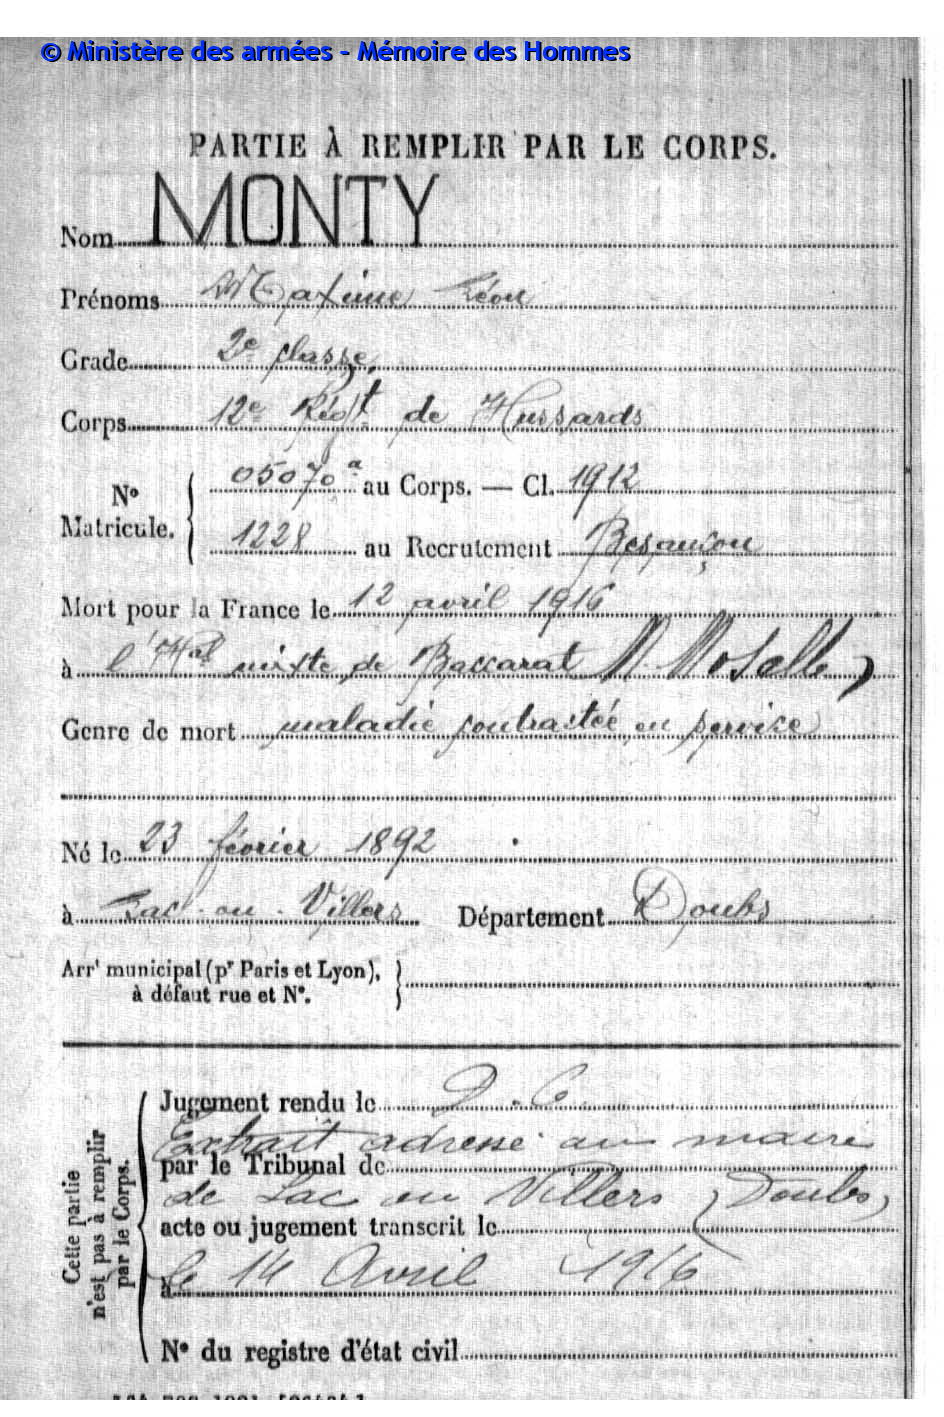 © Ministère des armées - Mémoire des Hommes
PARTIE À REMPLIR PAR LE CORPS.
Nom MONTY
Prénoms Maxime Léon
Grade 2e classe.
Corps 12e Régt. de Hussards
N° Matricule. { 05070 a au Corps. — Cl. 1912
1228 au Recrutement Besançon
Mort pour la France le 12 avril 1916
à l'Hal mixte de Baccarat M. Moselle
Genre de mort maladie contractée en service
Né le 23 février 1892
à Lac-ou-Villers Département Doubs
Arrt municipal (pr Paris et Lyon), }
à défaut rue et N°.
Cette partie n'est pas à remplir par le Corps.
Jugement rendu le D.C.
Extrait adressé au maire
par le Tribunal de
de Lac ou Villers (Doubs)
acte ou jugement transcrit le
le 14 Avril 1916
à
N° du registre d'état civil